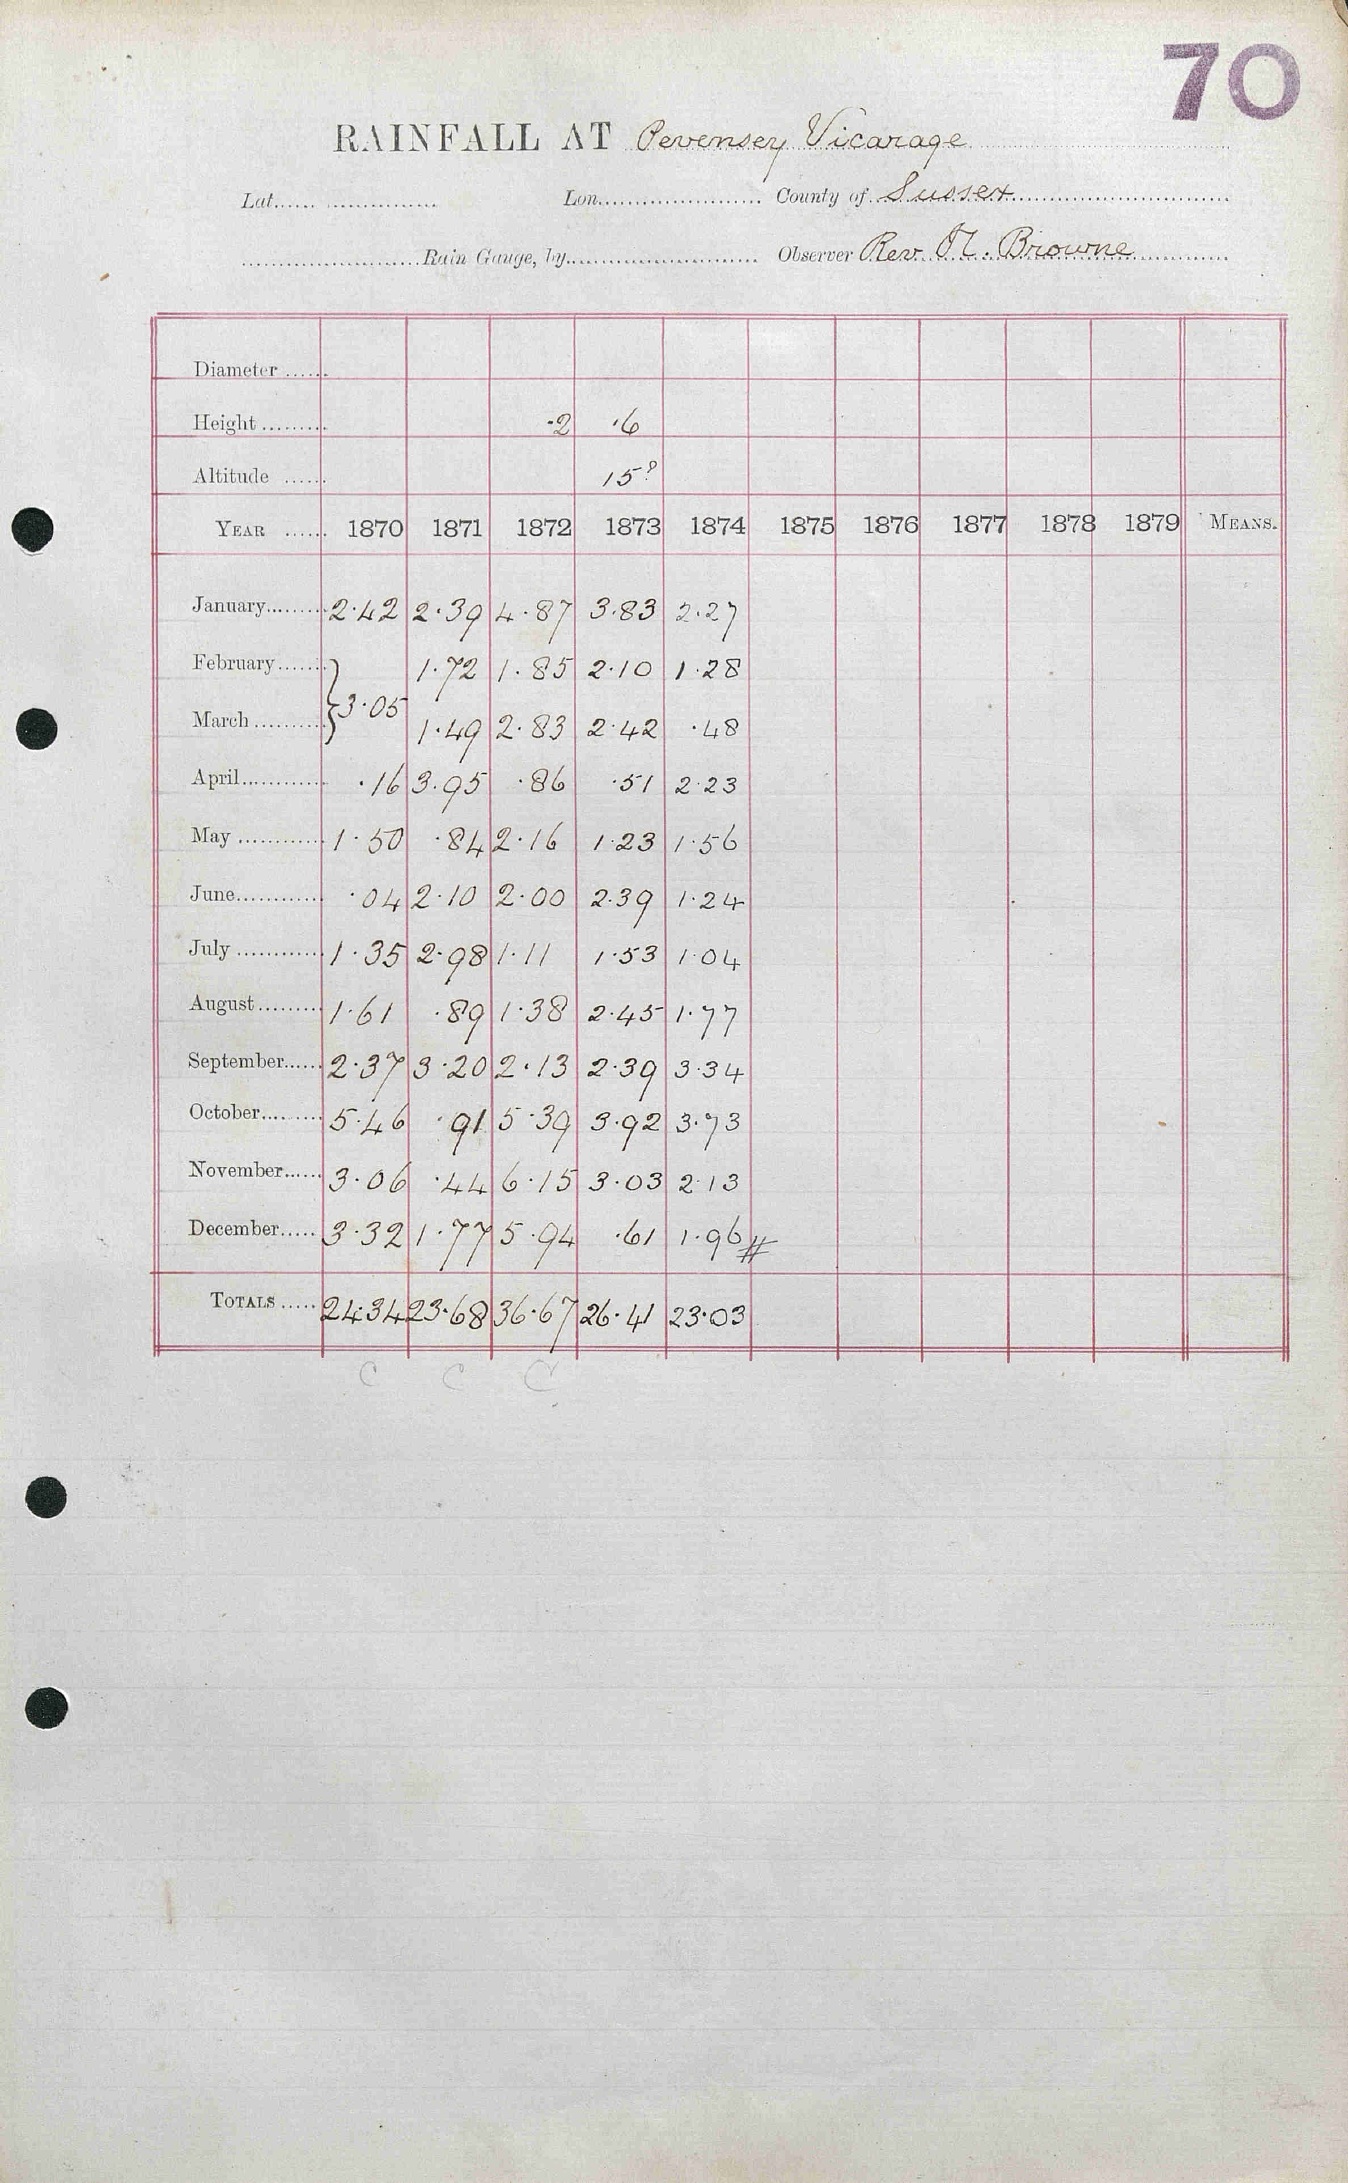 70
RAINFALL AT Pevensey Vicarage
Lat. Lon. County of Sussex
Rain Gauge, by Observer Rev. Browne
Diameter
Height ·2 ·6
Altitude 15?
YEAR 1870 1871 1872 1873 1874 1875 1876 1877 1878 1879 MEANS.
January 2·42 2·39 4·87 3·83 2·27
February } 1·72 1·85 2·10 1·28
3·05
March 1·49 2·83 2·42 ·48
April ·16 3·95 ·86 ·51 2·23
May 1·50 ·84 2·16 1·23 1·56
June ·04 2·10 2·00 2·39 1·24
July 1·35 2·98 1·11 1·53 1·04
August 1·61 ·89 1·38 2·45 1·77
September 2·37 3·20 2·13 2·39 3·34
October 5·46 ·91 5·39 3·92 3·73
November 3·06 ·44 6·15 3·03 2·13
December 3·32 1·77 5·94 ·61 1·96 #
TOTALS 24·34 23·68 36·67 26·41 23·03
C C C